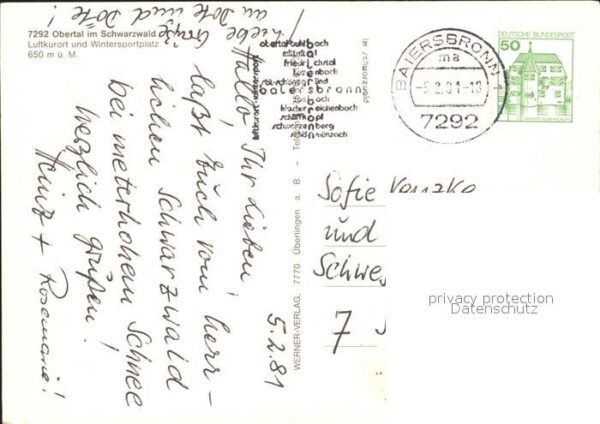 7292 Obertal im Schwarzwald
Luftkurort und Wintersportplatz
650 m ü. M.
Liebe Grüße
an Dote und Döte!
5.2.81
Hallo, Ihr Lieben!
laßt Euch vom herr-
lichen Schwarzwald
bei meterhohem Schnee
herzlich grüßen!
Heinz + Rosemarie!
WERNER-VERLAG, 7770 Überlingen a. B. - Tel
obertal buhlbach
friedrichstal
baiersbronn
klosterreichenbach
schwarzenberg
schönmünzach
im schwarzwald
BAIERSBRONN 1
ma
-5.2.81-18
7292
DEUTSCHE BUNDESPOST
50
Sofie
und
Schwe
7
privacy protection
Datenschutz